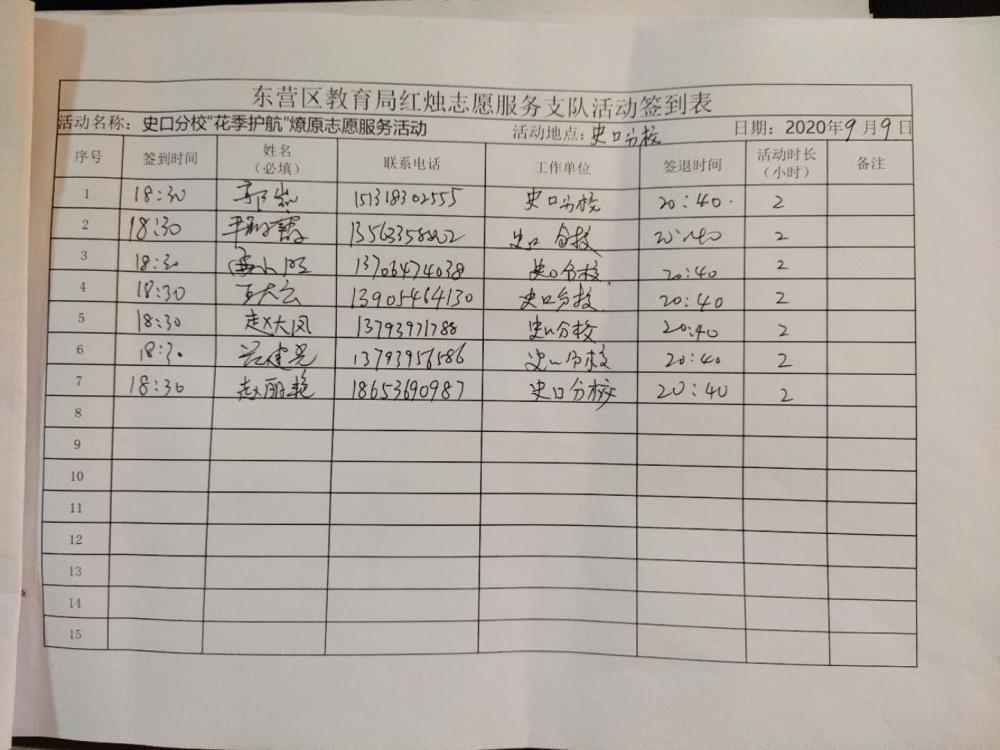 东营区教育局红烛志愿服务支队活动签到表
活动名称：史口分校“花季护航”燎原志愿服务活动 活动地点：史口分校 日期：2020年9月9日
序号 签到时间 姓名（必填） 联系电话 工作单位 签退时间 活动时长（小时） 备注
1 18:30 郭岩 151318302555 史口分校 20:40 2
2 18:30 史口分校 20:40 2
3 18:30 13706474038 史口分校 20:40 2
4 18:30 王大云 13905464130 史口分校 20:40 2
5 18:30 赵大凤 13793971788 史口分校 20:40 2
6 18:30 13793956586 史口分校 20:40 2
7 18:30 赵丽艳 18653690987 史口分校 20:40 2
8
9
10
11
12
13
14
15